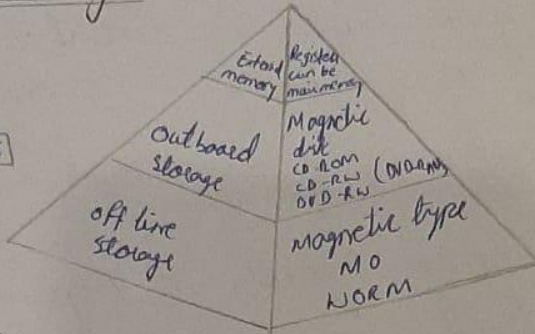 Extend
memory
Register
can be
main memory
Outboard
Storage
Magnetic
disk
CD-ROM
CD-RW
DVD-RW (DVD-RAM)
off line
storage
Magnetic type
MO
WORM